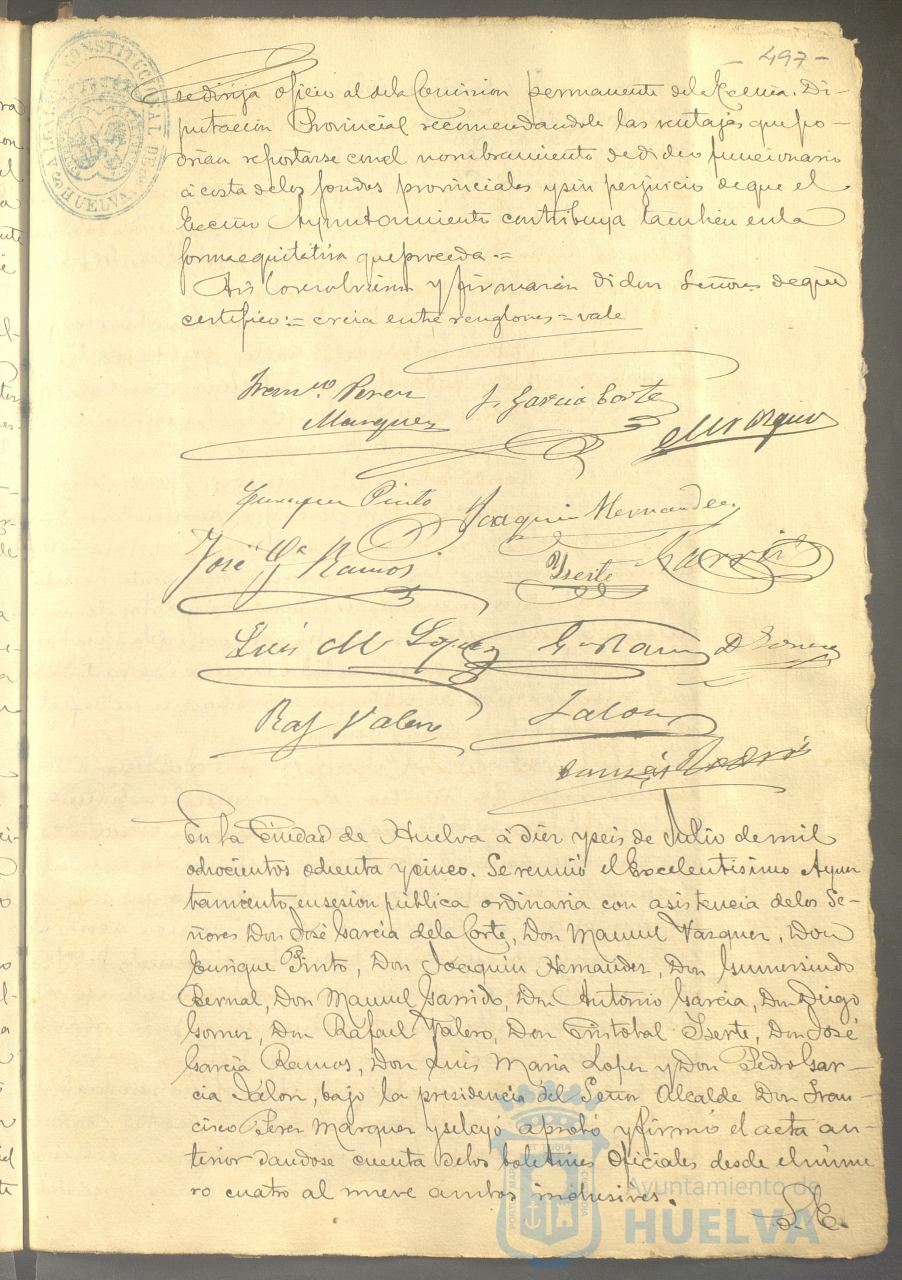 - 497 -
ALCALDIA CONSTITUCIONAL DE HUELVA
se dirija oficio al dela Comision permanente dela Excma. Di-
putacion Provincial recomendandole las ventajas que po-
drian reportarse conel nombramiento dedicho funcionario
á costa delos fondos provinciales ysin perjuicio deque el
Excmo Ayuntamiento contribuya tambien enla
forma equitativa queproceda.=
Asi lo resolvieron y firmarán dichos Señores deque
certifico:= creia entre renglones = vale
Franco Perez
Marquez
J. Garcia Corte
M Vazquez
Enrique Pinto
Joaquin Hernandez
José Ga Ramos
Yserte
Garrido
Luis M Lopez
D Gomez
Raf Valero
Jalon
En la Ciudad de Huelva á diez yseis de Julio demil
ochocientos ochenta ycinco. Sereunió el Excelentisimo Ayun
tamiento, ensesion pública ordinaria con asistencia delos Se-
ñores Don José Garcia dela Corte, Don Manuel Vazquez, Don
Enrique Pinto, Don Joaquin Hernandez, Don Gumersindo
Bernal, Don Manuel Garrido, Don Antonio Garcia, Don Diego
Gomez, Don Rafael Valero, Don Cristobal Yserte, Don José
Garcia Ramos, Don Luis Maria Lopez y Don Pedro Gar-
cia Jalon, bajo la presidencia del Señor Alcalde Don Fran-
cisco Perez Marquez yseleyó aprobó yfirmó el acta an-
terior dandose cuenta delos boletines Oficiales desde elnúme
ro cuatro al nueve ambos inclusives.
Ayuntamiento de
HUELVA